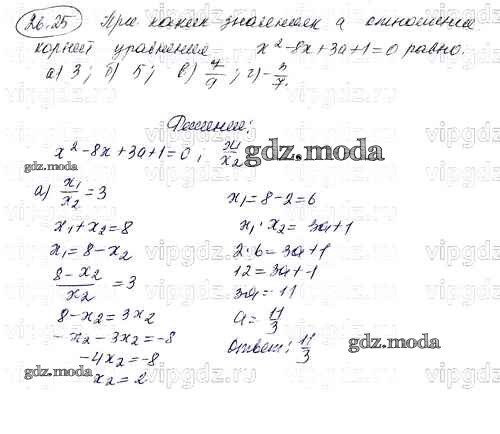 26.25 При каких значениях а отношение
корней уравнения x²-8x+3a+1=0 равно.
а) 3; б) 5; в) 7/9; г) -3/7.
Решение:
x²-8x+3a+1=0; x1/x2
gdz.moda
gdz.moda
а) x1/x2 = 3
x1+x2=8
x1=8-x2
8-x2/x2 = 3
8-x2=3x2
-x2-3x2=-8
-4x2=-8
x2=2
x1=8-2=6
x1·x2=3a+1
2·6=3a+1
12=3a+1
3a=11
a=11/3
Ответ: 11/3
gdz.moda
gdz.moda
vipgdz.ru